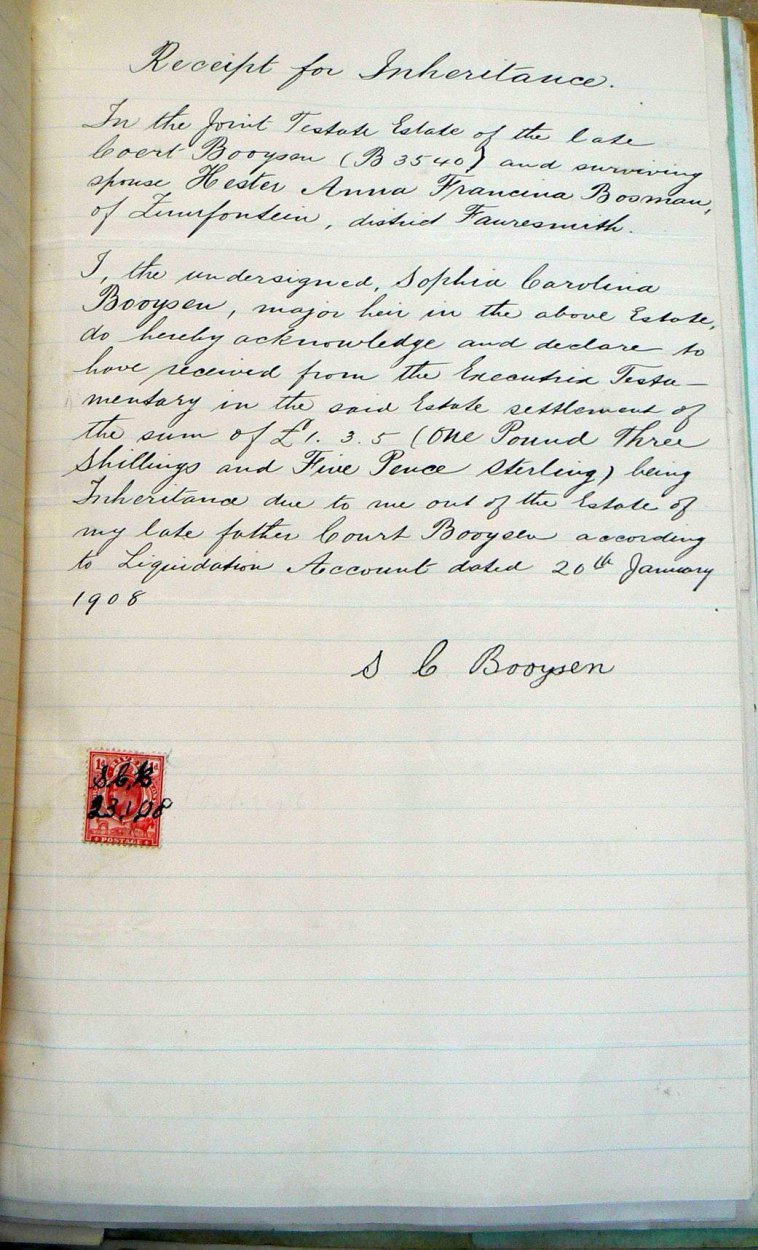 Receipt for Inheritance.
In the Joint Testate Estate of the late
Coert Booysen (B 3540) and surviving
spouse Hester Anna Francina Bosman,
of Zuurfontein, district Fauresmith.
I, the undersigned, Sophia Carolina
Booysen, major heir in the above Estate,
do hereby acknowledge and declare to
have received from the Executrix Testa-
mentary in the said Estate settlement of
the sum of £1. 3. 5 (One Pound Three
Shillings and Five Pence Sterling) being
Inheritance due to me out of the Estate of
my late father Court Booysen according
to Liquidation Account dated 20th January
1908
S C Booysen
1d
S.C.B
23.1.08
POSTAGE